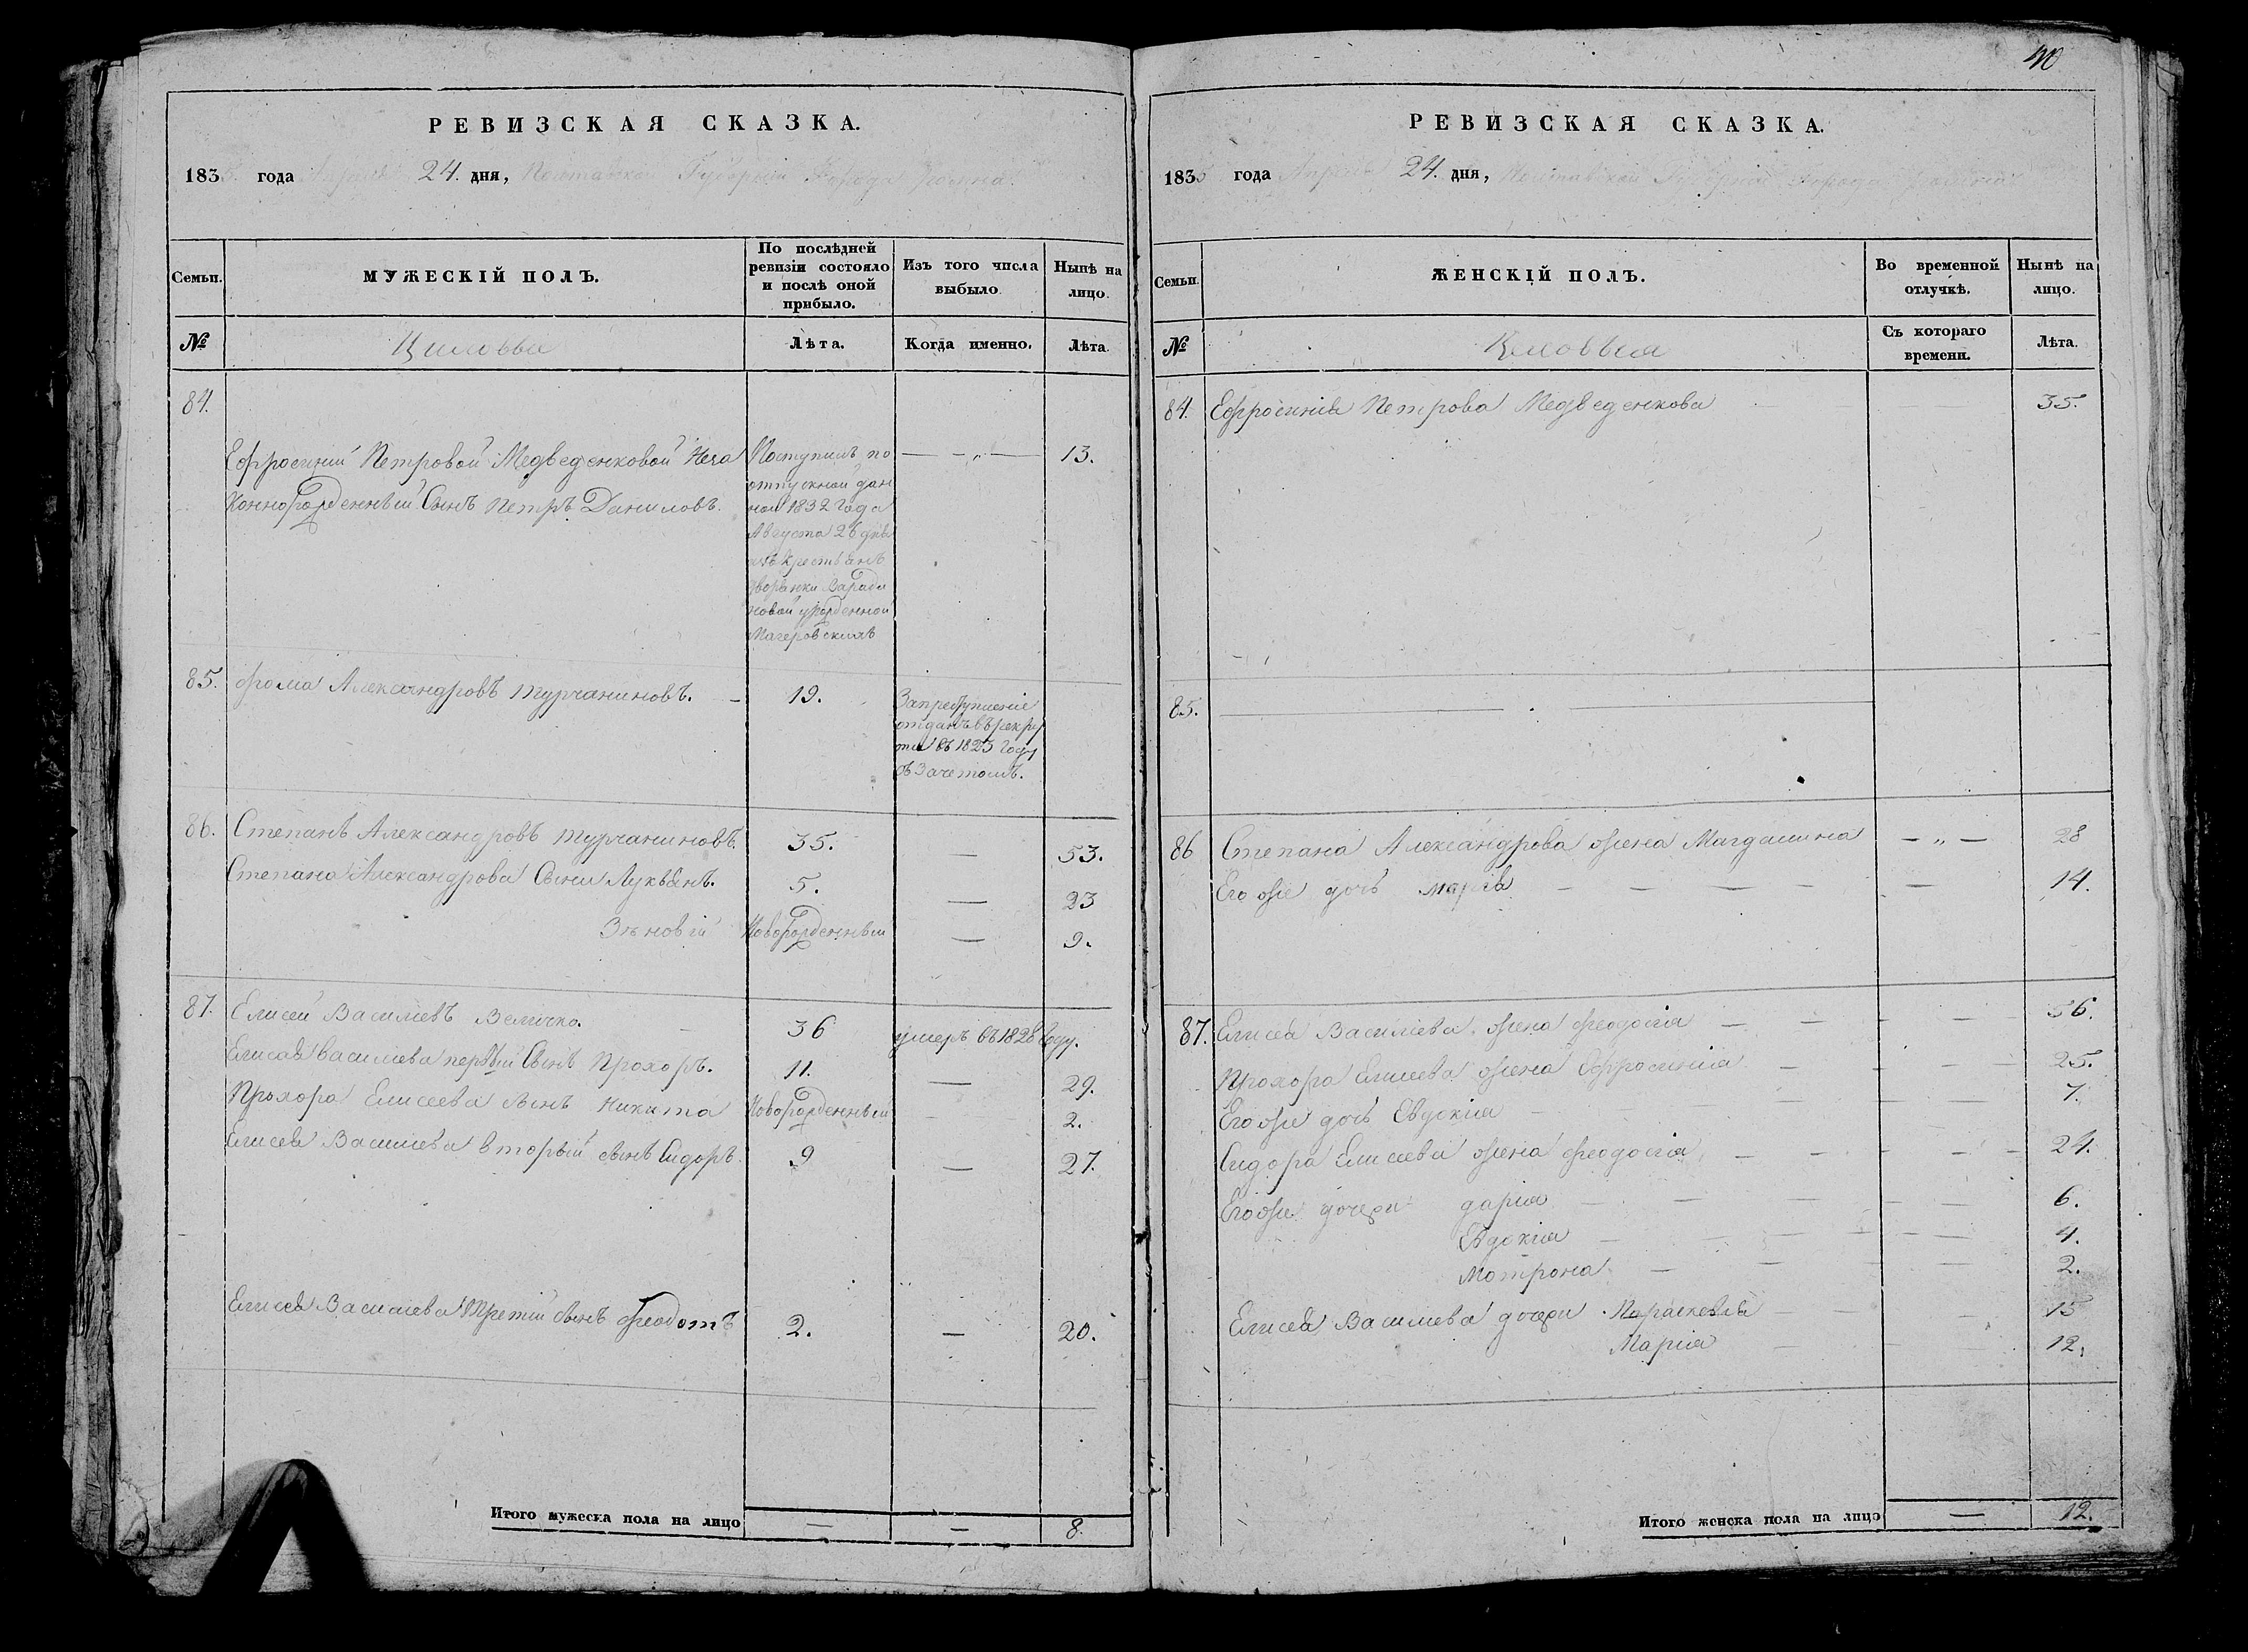 40
РЕВИЗСКАЯ СКАЗКА.
1835 года Апреля 24. дня, Полтавской Губерніи Города
Семьи.
МУЖЕСКІЙ ПОЛЪ.
По послѣдней ревизіи состояло и послѣ оной прибыло.
Изъ того числа выбыло
Нынѣ на лицо.
№
Лѣта.
Когда именно.
Лѣта.
84.
Ефросиніи Петровой Медведенковой
сынъ Петръ Даниловъ.
Поступилъ по
отпускной дан
ной 1832 года
Августа 26 дня
изъ крестьянъ
дворянки
урожденной
13.
85. Фома Александровъ Турчаниновъ. 19.
За преступленіе
отданъ въ рекру
ты въ 1825 году
съ Зачетомъ.
86. Степанъ Александровъ Турчаниновъ. 35. — 53.
Степана Александрова Сыны Лукьянъ. 5. — 23
Зѣновій Новорожденный — 9.
87. Елисей Василіевъ Величко. 36 умеръ въ 1828 году.
Елисея Василіева первый Сынъ Прохоръ. 11. — 29.
Прохора Елисеева сынъ Никита Новорожденный 2.
Елисея Василіева вторый сынъ Сидоръ. 9 — 27.
Елисея Василіева Третій сынъ Феодотъ 2. — 20.
Итого мужеска пола на лицо — — 8.
РЕВИЗСКАЯ СКАЗКА.
1835 года Апреля 24. дня, Полтавской Губерніи Города
Семьи.
ЖЕНСКІЙ ПОЛЪ.
Во временной отлучкѣ.
Нынѣ на лицо.
№
Съ котораго времени.
Лѣта.
84. Ефросинія Петрова Медведенкова 35.
85. —
86 Степана Александрова жена Магдалина — „ — 28
Его же дочь Марія — 14.
87. Елисея Василіева жена Феодосія — 56.
Прохора Елисеева жена Ефросинія — 25.
Его же дочь Евдокія — 7.
Сидора Елисеева жена Феодосія — 24.
Его же дочери дарія — 6.
Евдокія — 4.
Мотрона — 2.
Елисея Василіева дочери Параскевія — 15
Марія — 12.
Итого женска пола на лицо — 12.